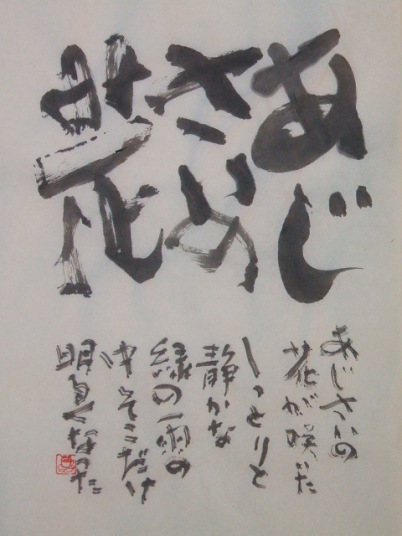 あじ
さいの
花
あじさいの
花が咲いた
しっとりと
静かな
緑の雨の
中そこだけ
明るくなった